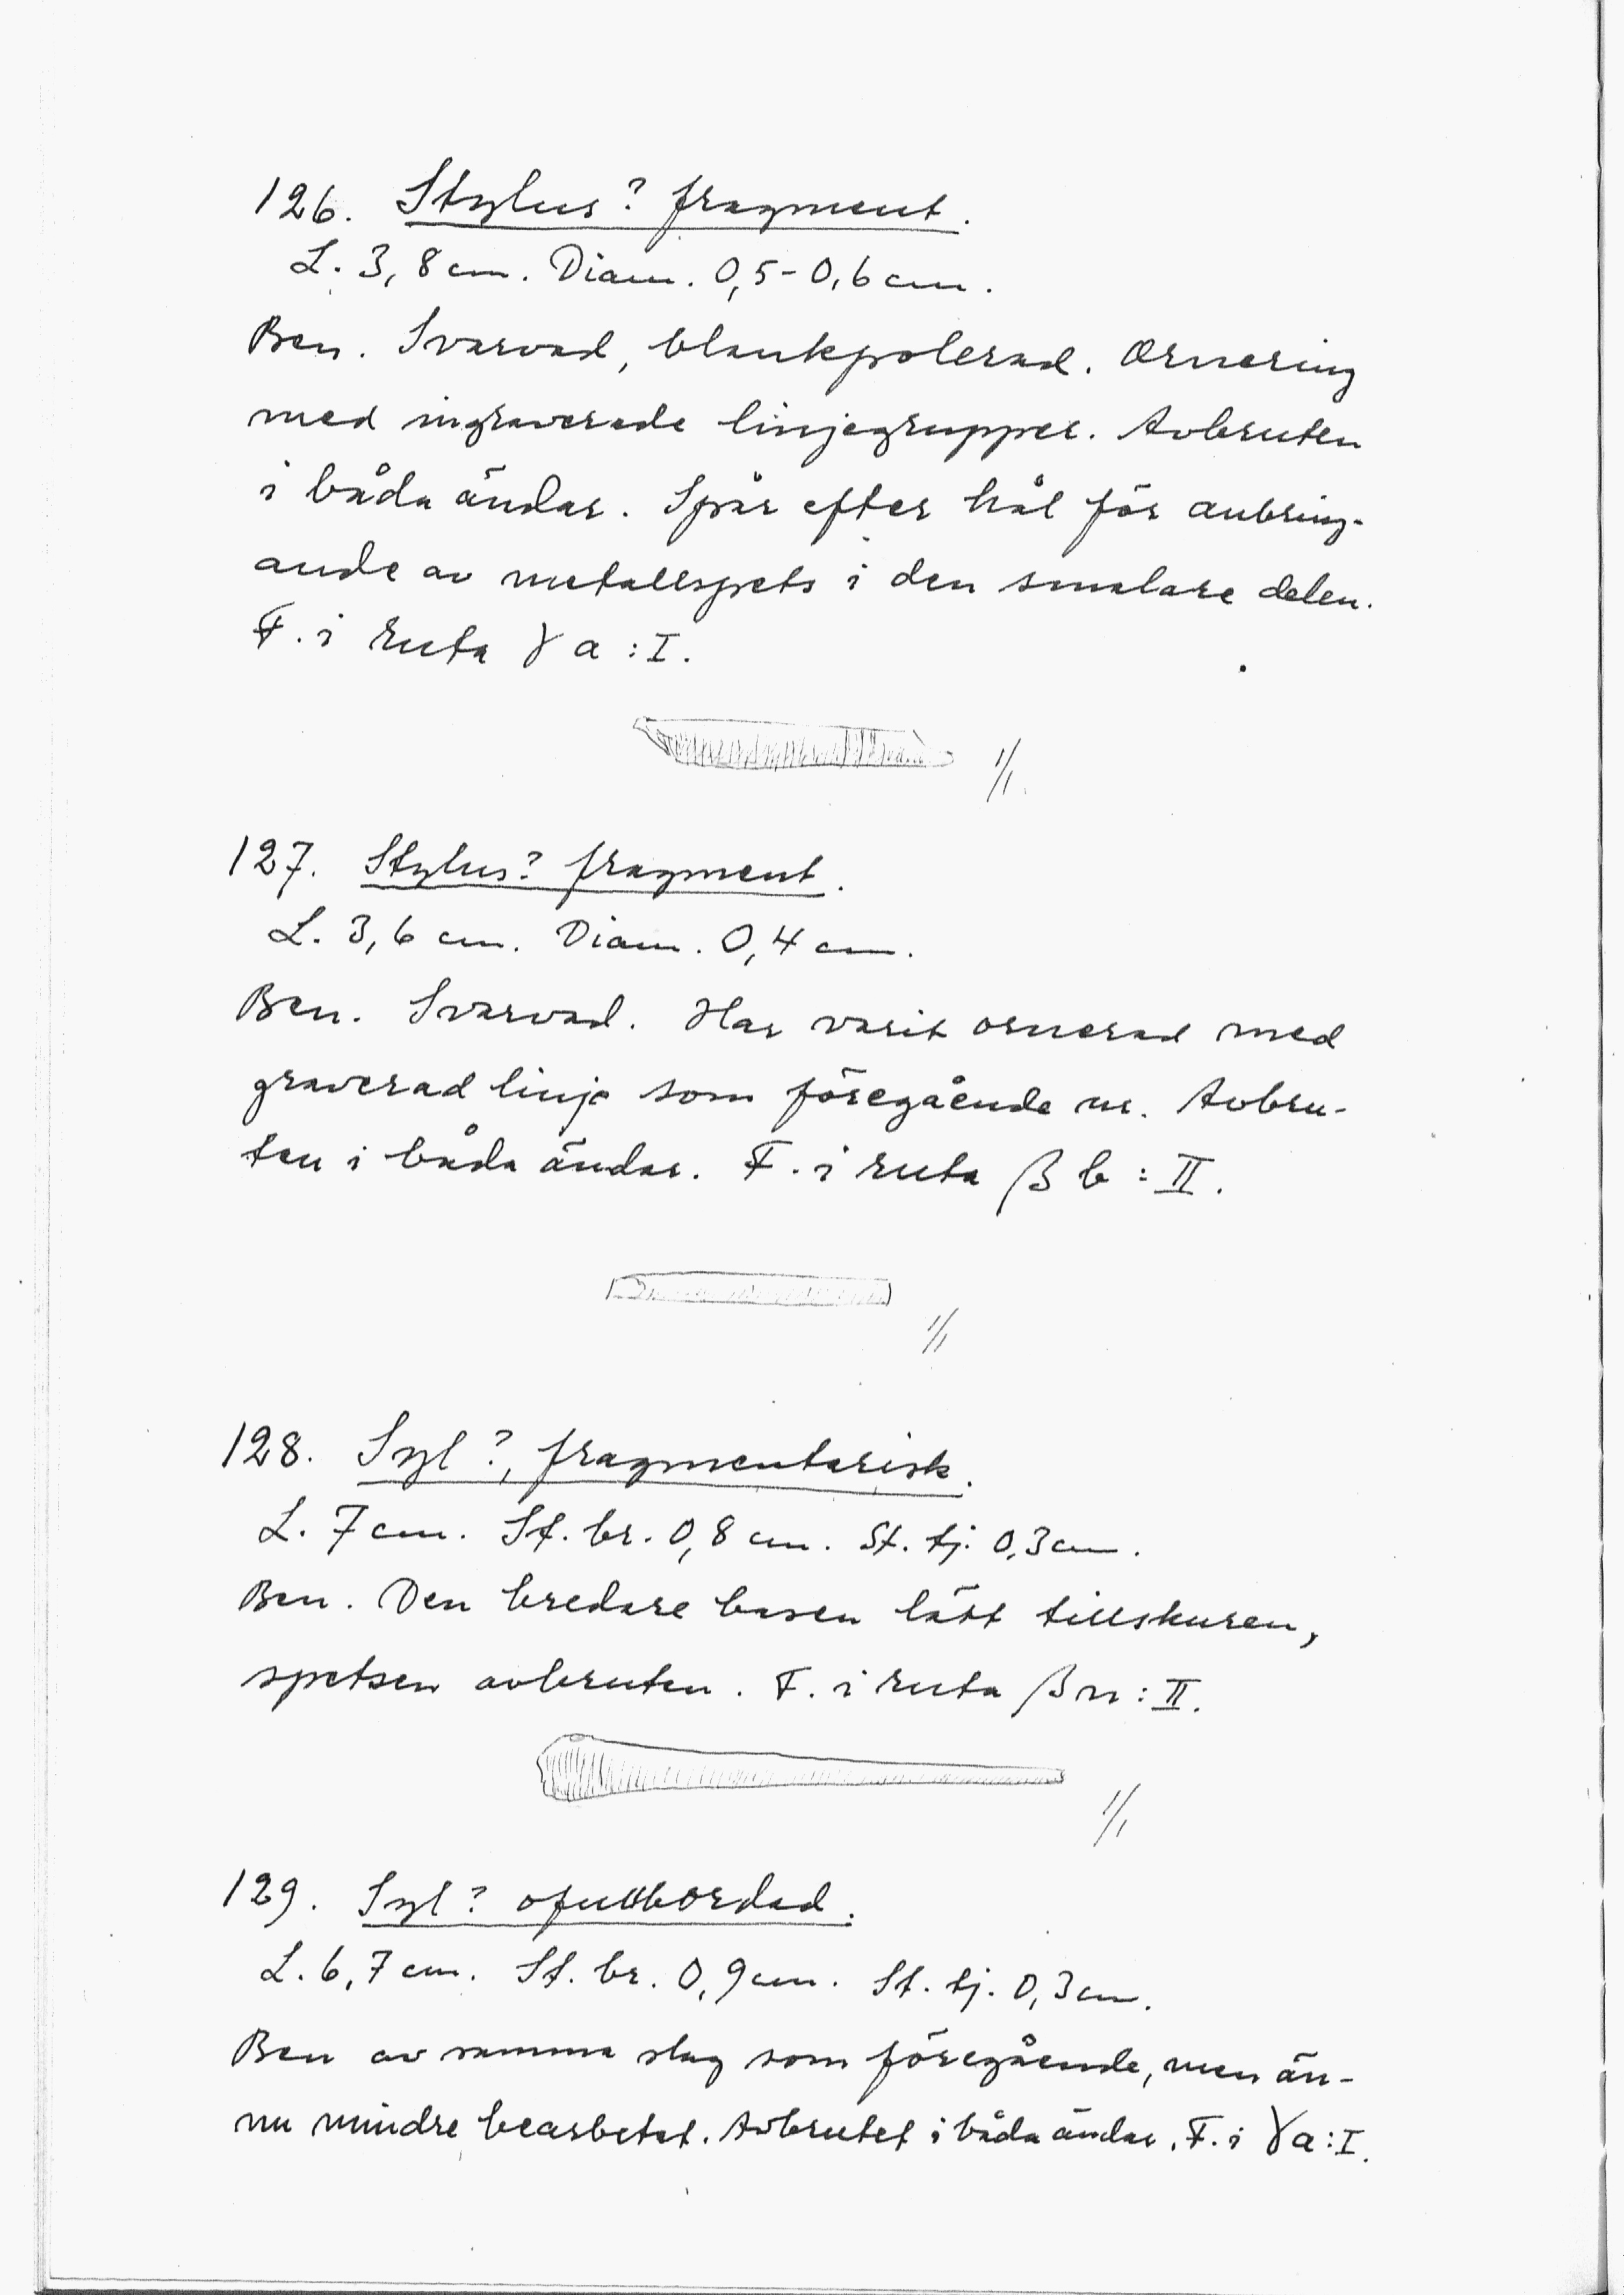 126. Stylus? fragment.
L. 3,8 cm. Diam. 0,5-0,6 cm.
Ben. Svarvad, blankpolerad. Ornering
med ingraverade linjegrupper. Avbruten
i båda ändar. Spår efter hål för anbring-
ande av metallspets i den smalare delen.
F. i ruta γ a : I.
1/1
127. Stylus? fragment.
L. 3,6 cm. Diam. 0,4 cm.
Ben. Svarvad. Har varit ornerad med
graverad linje som föregående nr. Avbru-
ten i båda ändar. F. i ruta β b : II.
1/1
128. Syl?, fragmentarisk.
L. 7 cm. St. br. 0,8 cm. St. tj. 0,3 cm.
Ben. Den bredare basen lätt tillskuren,
spetsen avbruten. F. i ruta β n : II.
1/1
129. Syl? ofullbordad.
L. 6,7 cm. St. br. 0,9 cm. St. tj. 0,3 cm.
Ben av samma slag som föregående, men än-
nu mindre bearbetat. Avbrutet i båda ändar. F. i γ a : I.